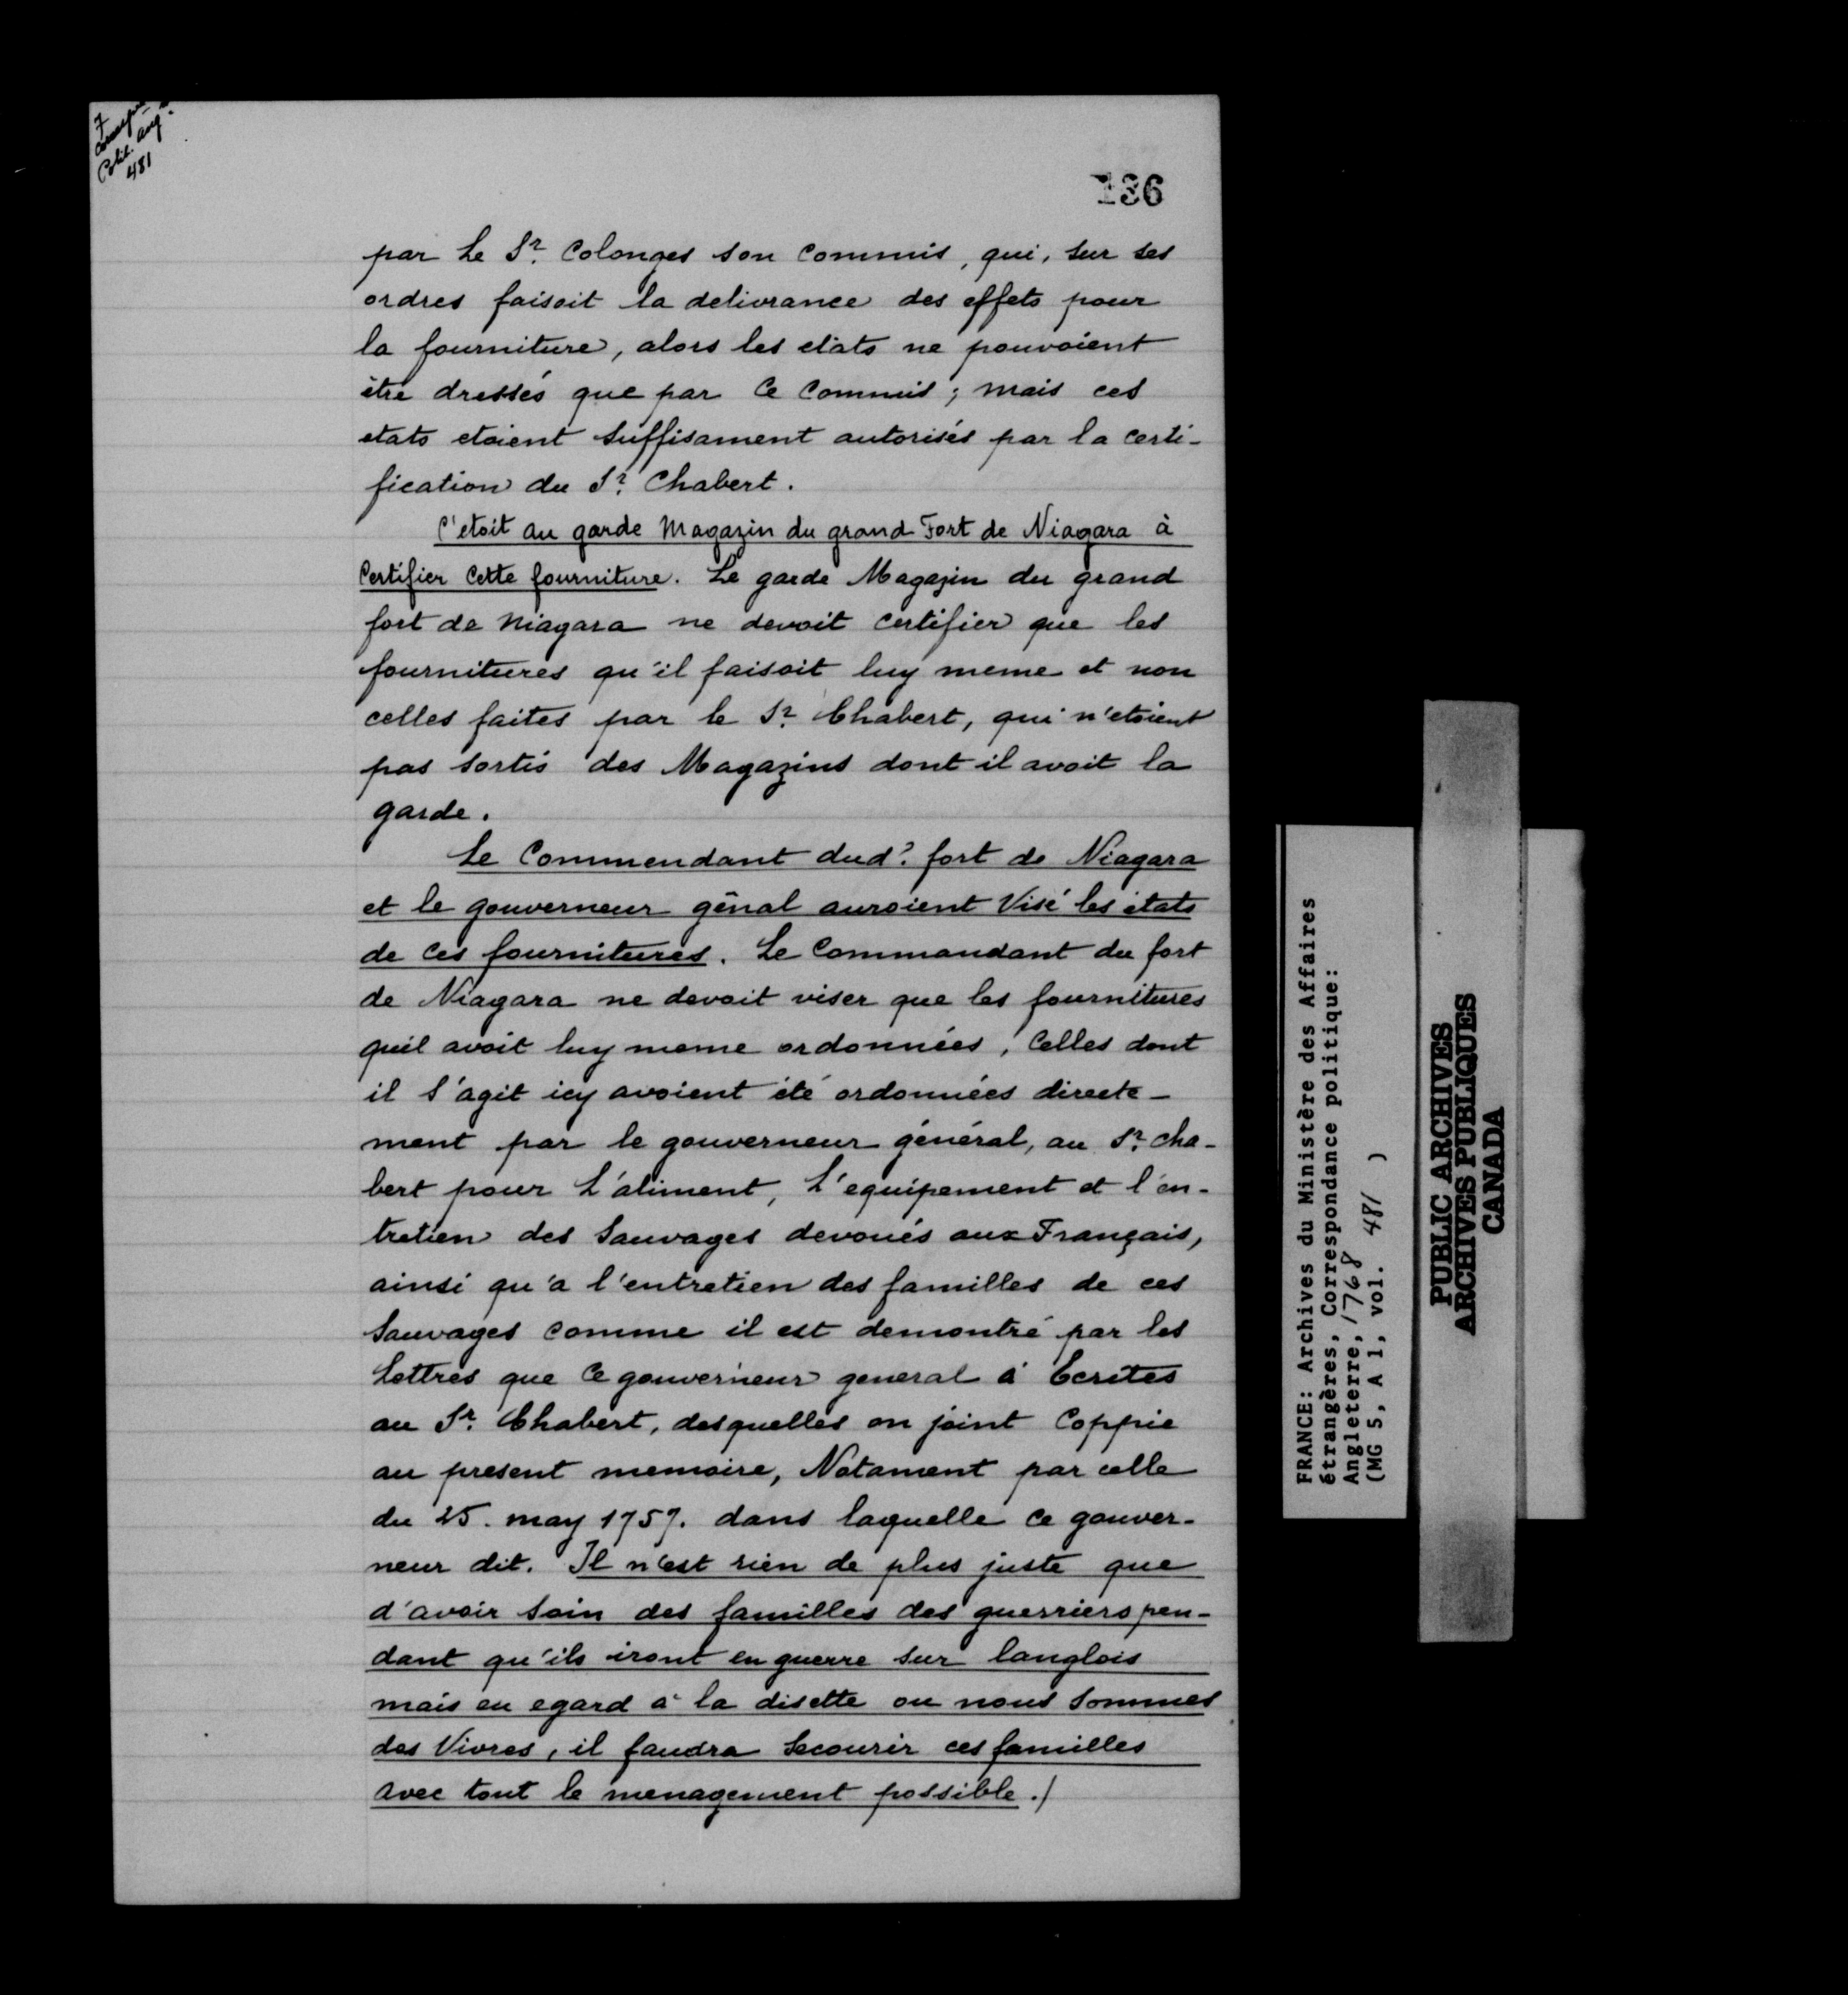 Polit. ang.
481
136
par Le Sr. Colonges son Commis, qui, sur ses
ordres faisoit la delivrance des effets pour
la fourniture, alors les etats ne pouvoient
être dressés que par Ce Commis; mais ces
etats etoient suffisament autorisés par la certi-
fication du Sr. Chabert.
C'etoit au garde Magazin du grand Fort de Niagara à
Certifier Cette fourniture. Le garde Magazin du grand
fort de Niagara ne devoit certifier que les
fournitures qu'il faisoit luy meme et non
celles faites par le Sr. Chabert, qui n'etoient
pas sortis des Magazins dont il avoit la
garde.
Le Commendant dud. fort de Niagara
et le gouverneur gênal auroient Visé les états
de ces fournitures. Le Commandant du fort
de Niagara ne devoit viser que les fournitures
qu'il avoit luy meme ordonnées, Celles dont
il s'agit icy avoient été ordonnées directe-
ment par le gouverneur général, au Sr. Cha-
bert pour L'aliment, L'equipement et l'en-
tretien des Sauvages devoués aux Français,
ainsi qu'a l'entretien des familles de ces
Sauvages comme il est demontré par les
lettres que Ce gouverneur general à Ecrites
au Sr. Chabert, desquelles on joint Coppie
au present memoire, Notament par celle
du 25. may 1757. dans laquelle ce gouver-
neur dit. Il n'est rien de plus juste que
d'avoir soin des familles des guerriers pen-
dant qu'ils iront en guerre sur langlois
mais eu egard à la disette ou nous sommes
des Vivres, il faudra Secourir ces familles
avec tout le menagement possible./
FRANCE: Archives du Ministère des Affaires
étrangères, Correspondance politique:
Angleterre, 1768
(MG 5, A 1, vol. 481 )
PUBLIC ARCHIVES
ARCHIVES PUBLIQUES
CANADA